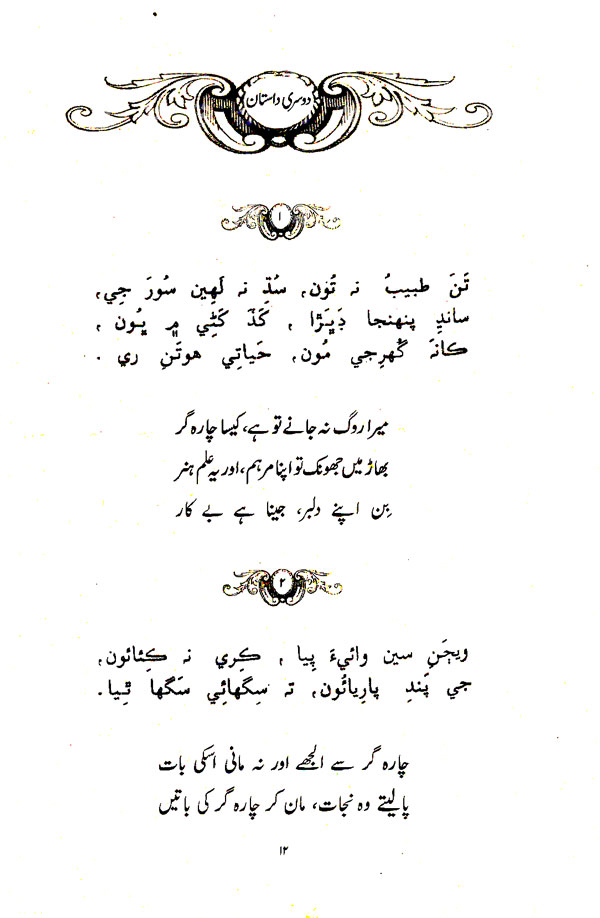 دوسری داستان
۱
تَنَ طبيبُ نہ تُون، سُڌِ نہ لَهِين سُورَ جِي،
سانڍِ پنهنجا ڊَڀَڙا، کَڏَ کَڻِي ۾ ڀُون،
ڪانہَ گُهرِجي مُون، حَياتِي هوتَنِ ري .
میرا روگ نہ جانے تو ہے، کیسا چارہ گر
بھاڑ میں جھونک تو اپنا مرہم، اور یہ علم ہنر
بِن اپنے دلبر، جینا ہے بے کار
۲
ويڄَنِ سين وائيءَ پِيا، ڪِرِي نہ ڪِئائون،
جي پَندِ پارِيائُون، تہ سِگهائِي سَگها ٿِيا.
چارہ گر سے الجھے اور نہ مانی اسکی بات
پالیتے وہ نجات، مان کر چارہ گر کی باتیں
۱۲